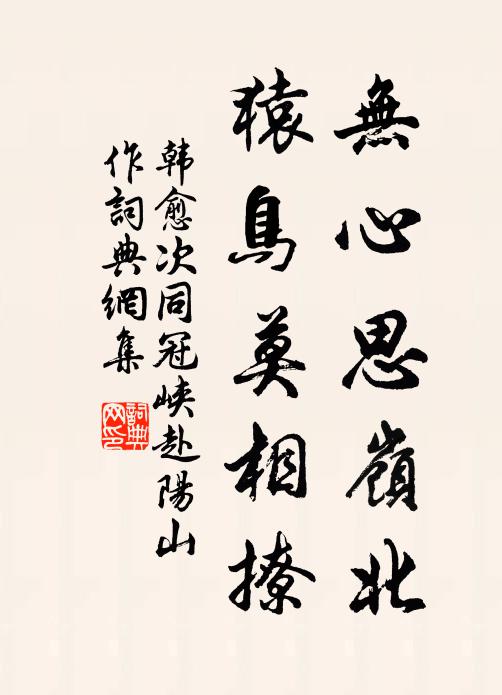 無心思嶺北
猿鳥莫相撩
韩愈次同冠峡赴陽山
作詞典網集
詞典
网印